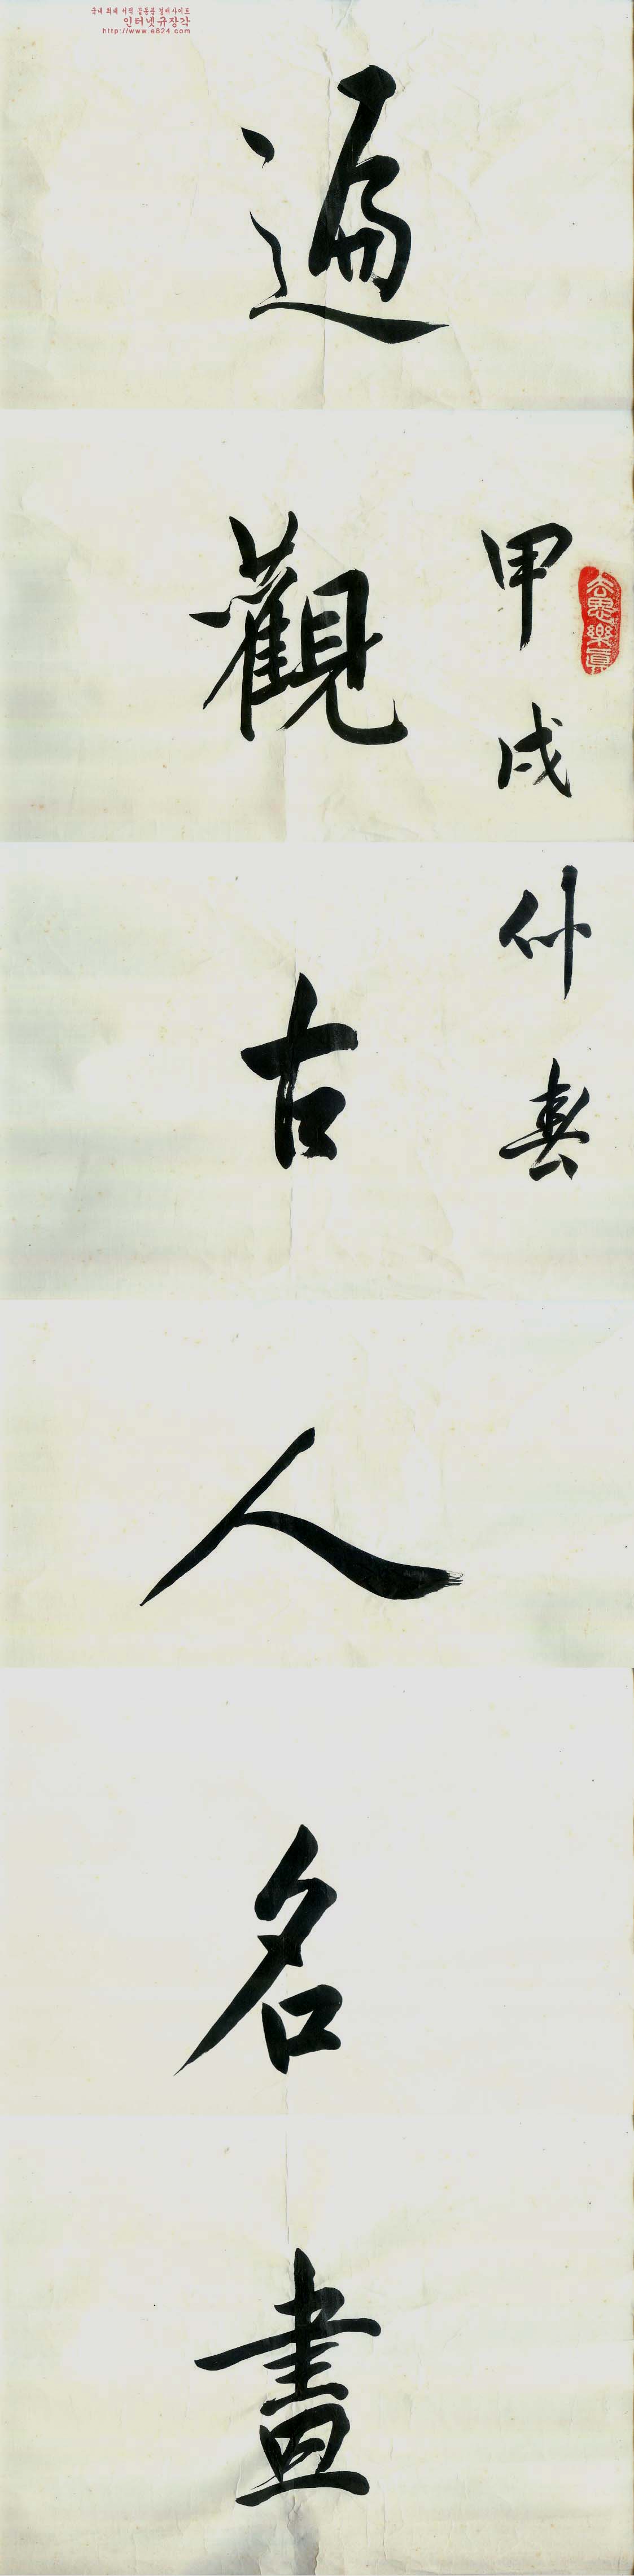 국내 최대 서적 골동품 경매사이트
인터넷규장각
http://www.e824.com
甲戌仲春
遍觀古人名畫